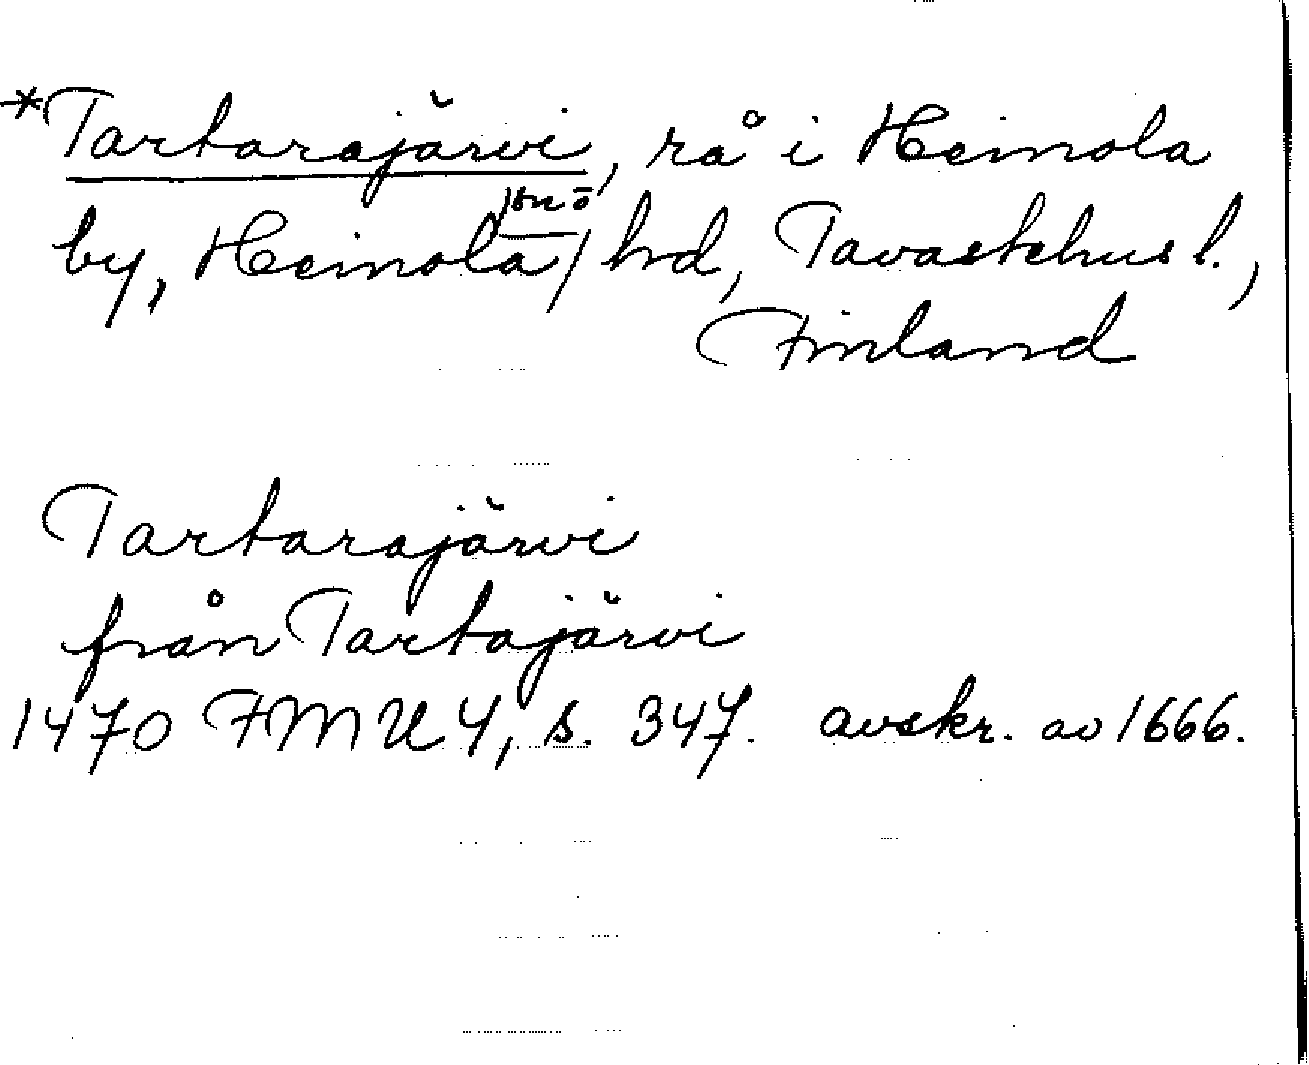 *Tartarajärvi, rå i Heinola
by, Heinola / hd, Tavastehus l.,
Finland
Tartarajärvi
från Tartajärvi
1470 FMU 4, s. 347. avskr. av 1666.